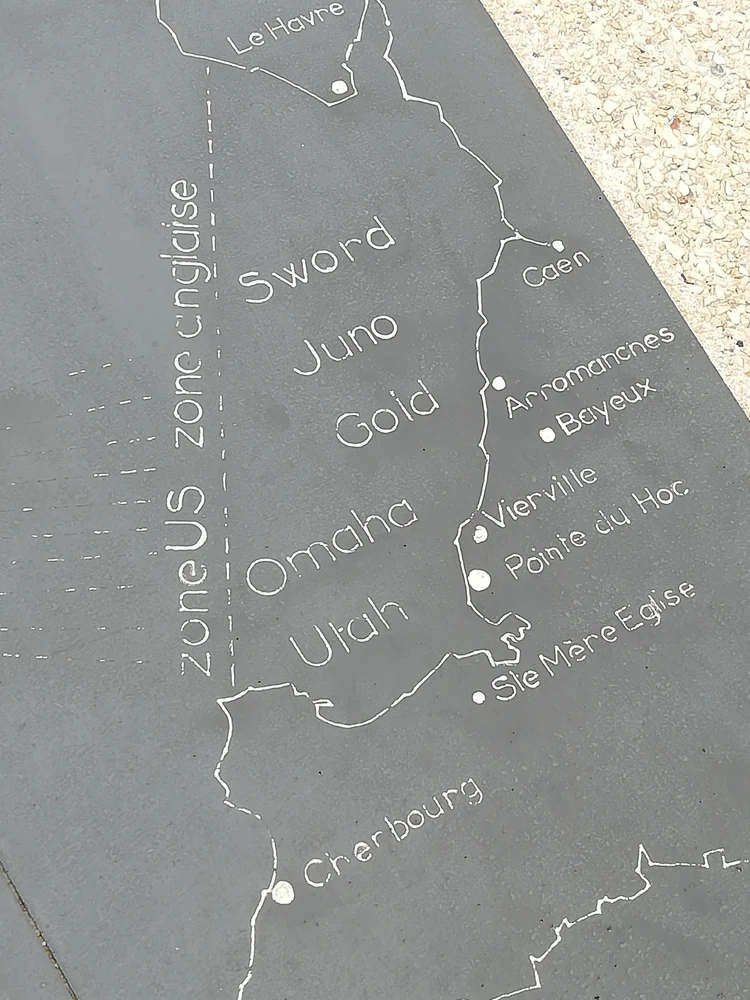 Le Havre
zone anglaise
Sword
Caen
Juno
Arromanches
Gold
Bayeux
Vierville
zone US
Omaha
Pointe du Hoc
Utah
Ste Mère Eglise
Cherbourg